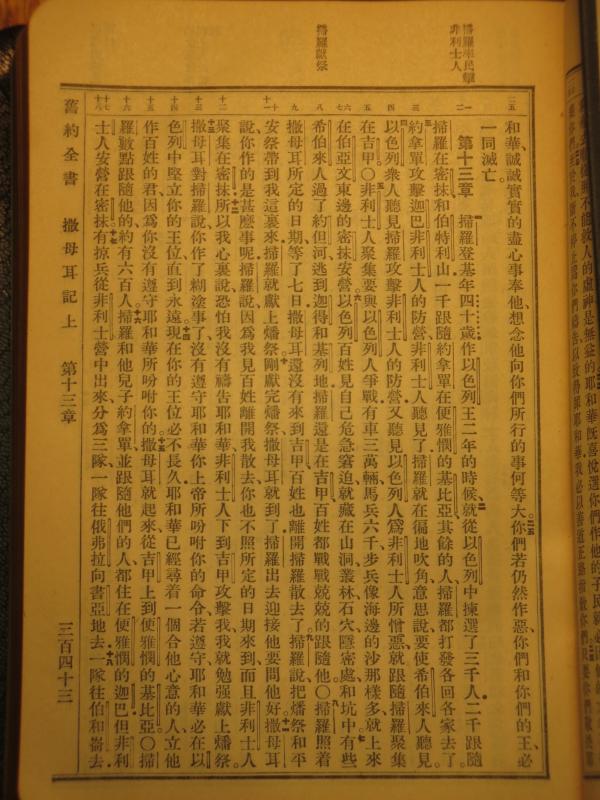 和華誠誠實實的盡心事奉他想念他向你們所行的事何等大你們若仍然作惡你們和你們的王必
一同滅亡
第十三章 掃羅登基年四十歲作以色列王二年的時候就從以色列中揀選了三千人二千跟隨
掃羅在密抹和伯特利山一千跟隨約拿單在便雅憫的基比亞其餘的人掃羅都打發各回各家去了
約拿單攻擊迦巴非利士人的防營非利士人聽見了掃羅就在徧地吹角意思說要使希伯來人聽見
以色列衆人聽見掃羅攻擊非利士人的防營又聽見以色列人爲非利士人所憎惡就跟隨掃羅聚集
在吉甲〇非利士人聚集要與以色列人爭戰有車三萬輛馬兵六千步兵像海邊的沙那樣多就上來
在伯亞文東邊的密抹安營以色列百姓見自己危急窘迫就藏在山洞叢林石穴隱密處和坑中有些
希伯來人過了約但河逃到迦得和基列地掃羅還是在吉甲百姓都戰戰兢兢的跟隨他〇掃羅照着
撒母耳所定的日期等了七日撒母耳還沒有來到吉甲百姓也離開掃羅散去了掃羅說把燔祭和平
安祭帶到我這裏來掃羅就獻上燔祭剛獻完燔祭撒母耳就到了掃羅出去迎接他要問他好撒母耳
說你作的是甚麽事呢掃羅說因爲我見百姓離開我散去你也不照所定的日期來到而且非利士人
聚集在密抹所以我心裏說恐怕我沒有禱告耶和華非利士人下到吉甲攻擊我我就勉强獻上燔祭
撒母耳對掃羅說你作了糊塗事了沒有遵守耶和華你上帝所吩咐你的命令若遵守耶和華必在以
色列中堅立你的王位直到永遠現在你的王位必不長久耶和華已經尋着一個合他心意的人立他
作百姓的君因爲你沒有遵守耶和華所吩咐你的撒母耳就起來從吉甲上到便雅憫的基比亞〇掃
羅數點跟隨他的約有六百人掃羅和他兒子約拿單並跟隨他們的人都住在便雅憫的迦巴但非利
士人安營在密抹有掠兵從非利士營中出來分爲三隊一隊往俄弗拉向書亞地去一隊往伯和崙去
舊約全書 撒母耳記上 第十三章 三百四十三
掃羅率民擊
非利士人
掃羅獻祭